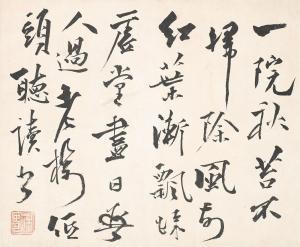 一院秋苔不
掃除風前
紅葉漸飄疎
唐堂盡日無
人過老樹低
頭聽讀書